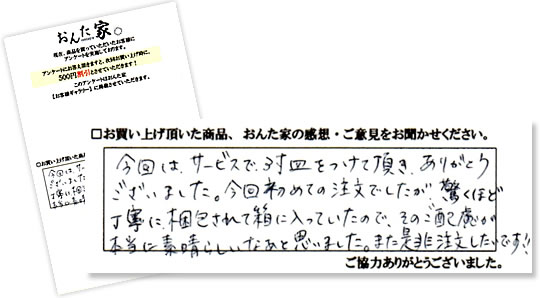 おんた家。
現在、商品を買っていただいたお客様に
アンケートを実施しております。
アンケートにお答え頂きますと、次回お買い上げ時に、
500円割引とさせていただきます!
このアンケートはおんた家
【お客様ギャラリー】に掲載させていただきます。
□お買い上げ頂いた商品、おんた家の感想・ご意見をお聞かせください。
今回は、サービスで、対皿をつけて頂き、ありがとう
ございました。今回初めての注文でしたが、驚くほど
丁寧に梱包されて箱に入っていたので、そのご配慮が
本当に素晴らしいなあと思いました。また是非注文したいです!!
ご協力ありがとうございました。